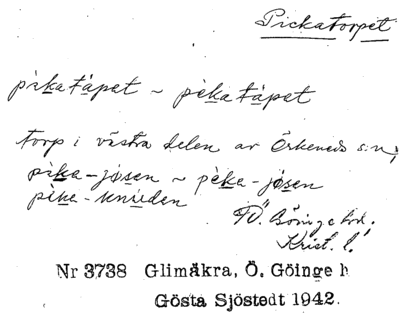 Pickatorpet
pìkatåpet ~ pèkatåpet
torp i västra delen av Örkeneds s:n;
pìka-jøsen ~ pèka-jøsen
pìka-
Ö. Göinge hd.
Krist. l.
Nr 3738 Glimåkra, Ö. Göinge h
Gösta Sjöstedt 1942.